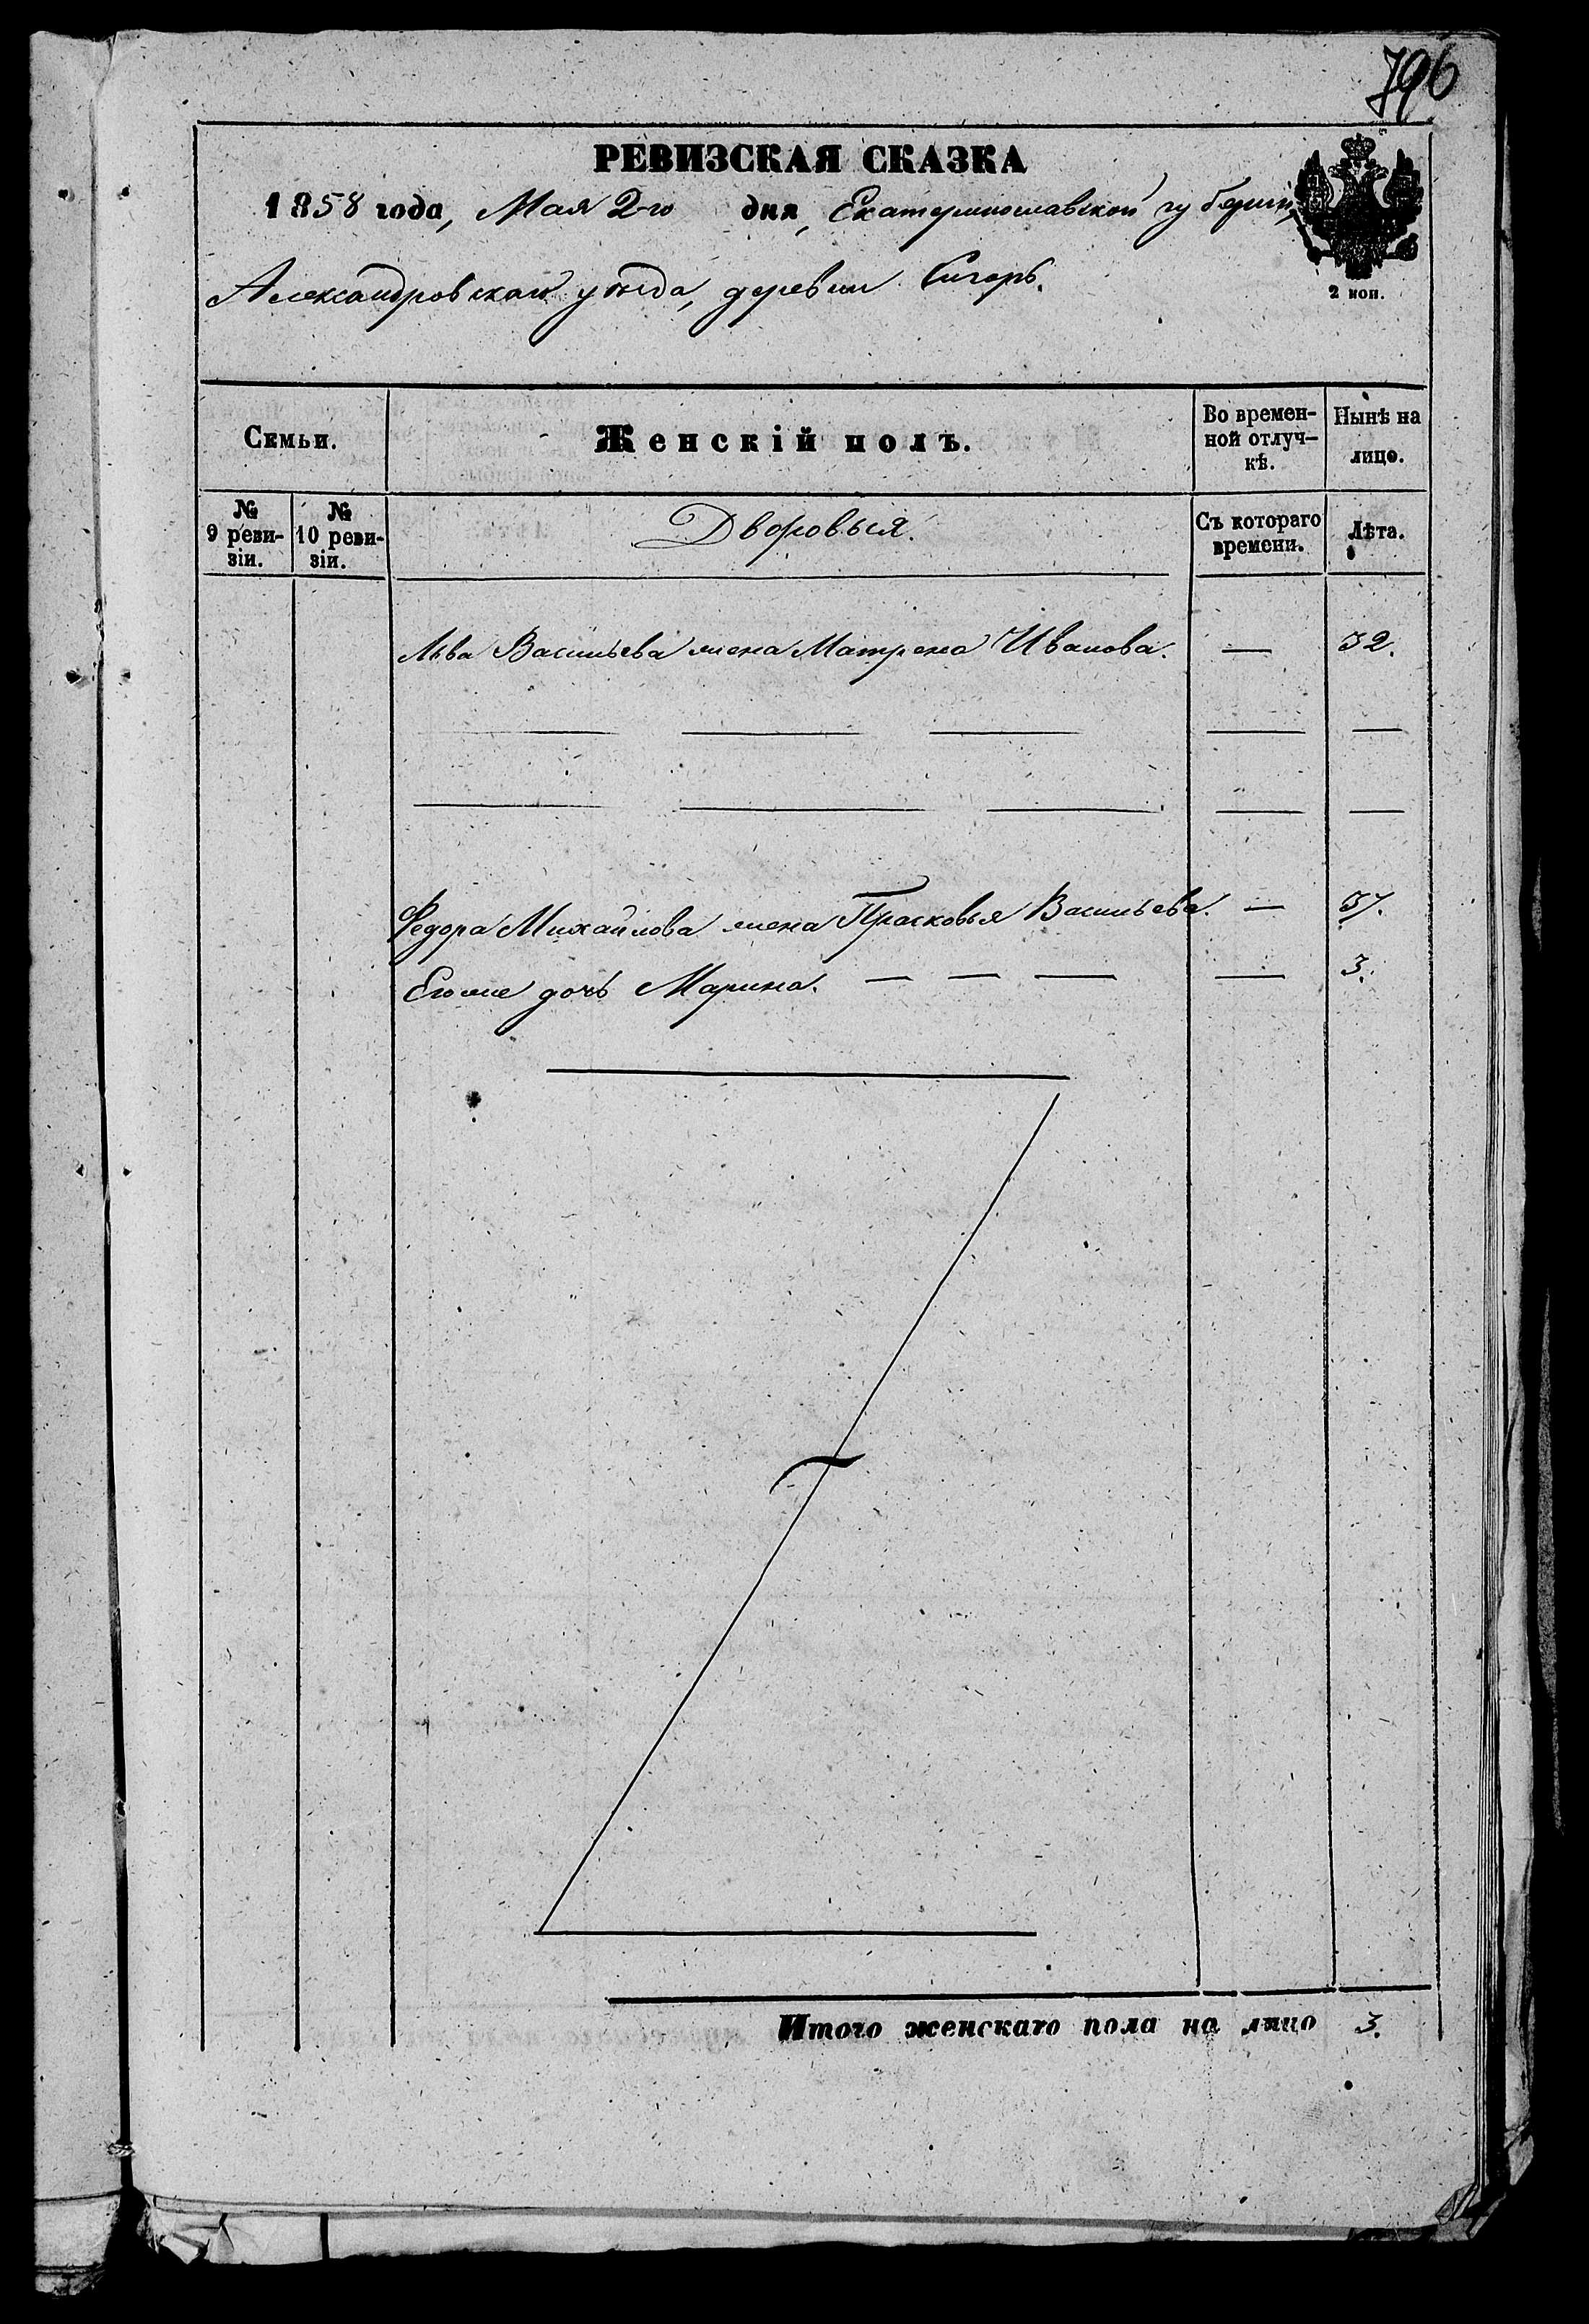 796
РЕВИЗСКАЯ СКАЗКА
1858 года, Мая 2-го дня, Екатеринославской губерніи,
Александровскаго уѣзда, деревни
2 коп.
Семьи.
Женскій полъ.
Во времен-
ной отлуч-
кѣ.
Нынѣ на
лицо.
№
9 реви-
зіи.
№
10 реви-
зіи.
Дворовыя.
Съ котораго
времени.
Лѣта.
Льва Васильева жена Матрена Иванова. — 32.
Федора Михайлова жена Прасковья Васильева. — 37.
Его же дочь Марина. — — — — 3.
Итого женскаго пола на лицо 3.